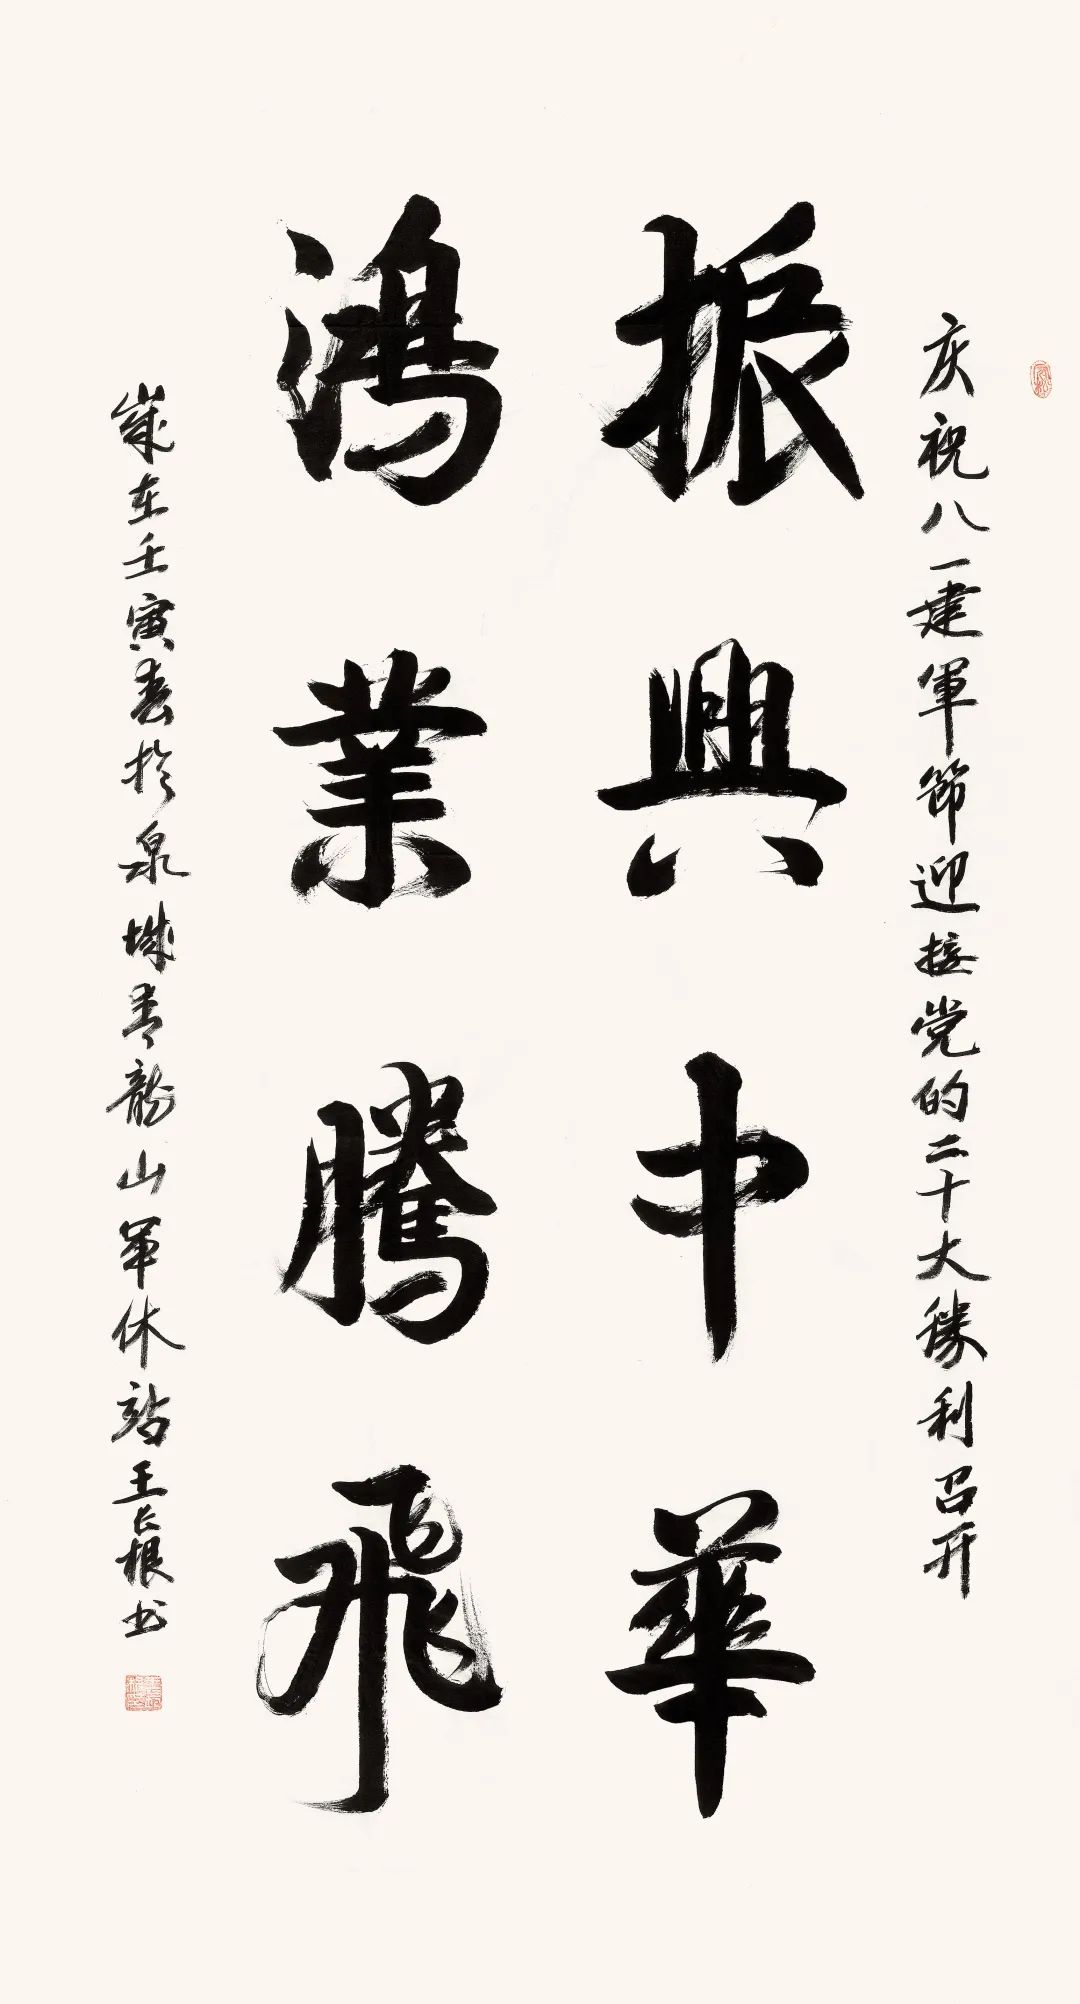 庆祝八一建軍節迎接党的二十大勝利召开
振興中華
鴻業騰飛
歲在壬寅春於泉城青龍山軍休站王長根书